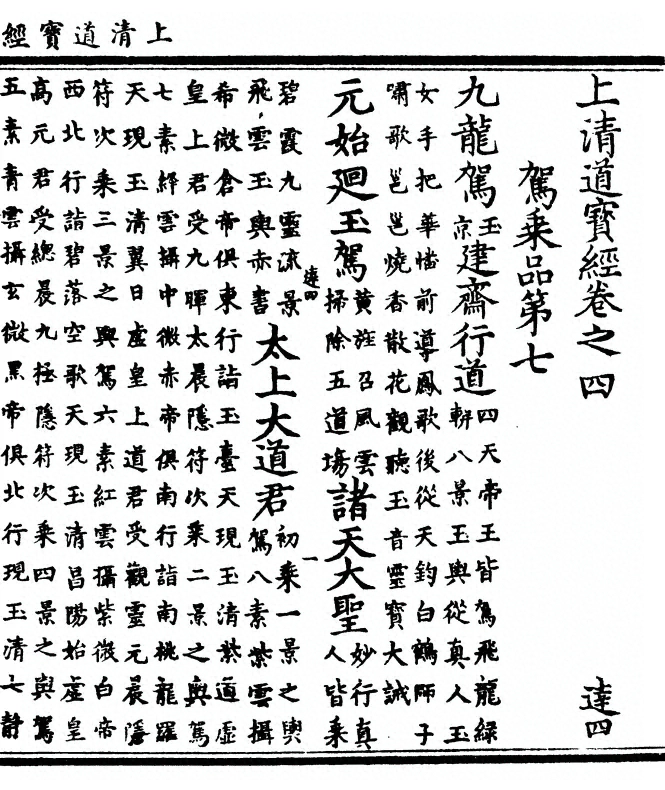 上清道寶經
上清道寶經卷之四 達四
駕乘品第七
九龍駕玉京建齋行道四天帝王皆駕飛龍綠
軿八景玉輿從真人玉
女手把華幡前導鳳歌後從天鈞白鶴師子
嘯歌邕邕燒香散花觀聽玉音靈寶大誡
元始廻玉駕黃旌召風雲
掃除五道塲諸天大聖妙行真
人皆乘
碧霞九靈流景
達四 一
飛雲玉輿赤書太上大道君初乘一景之輿
駕八素紫雲攝
希微倉帝俱東行詣玉臺天現玉清紫道虛
皇上君受九暉太晨隱符次乘二景之輿駕
七素絳雲攝中微赤帝俱南行詣南桃龍羅
天現玉清翼日虛皇上道君受觀靈元晨隱
符次乘三景之輿駕六素紅雲攝紫微白帝
西北行詣碧落空歌天現玉清昌陽始虛皇
高元君受總晨九極隱符次乘四景之輿駕
五素青雲攝玄微黑帝俱北行現玉清七靜